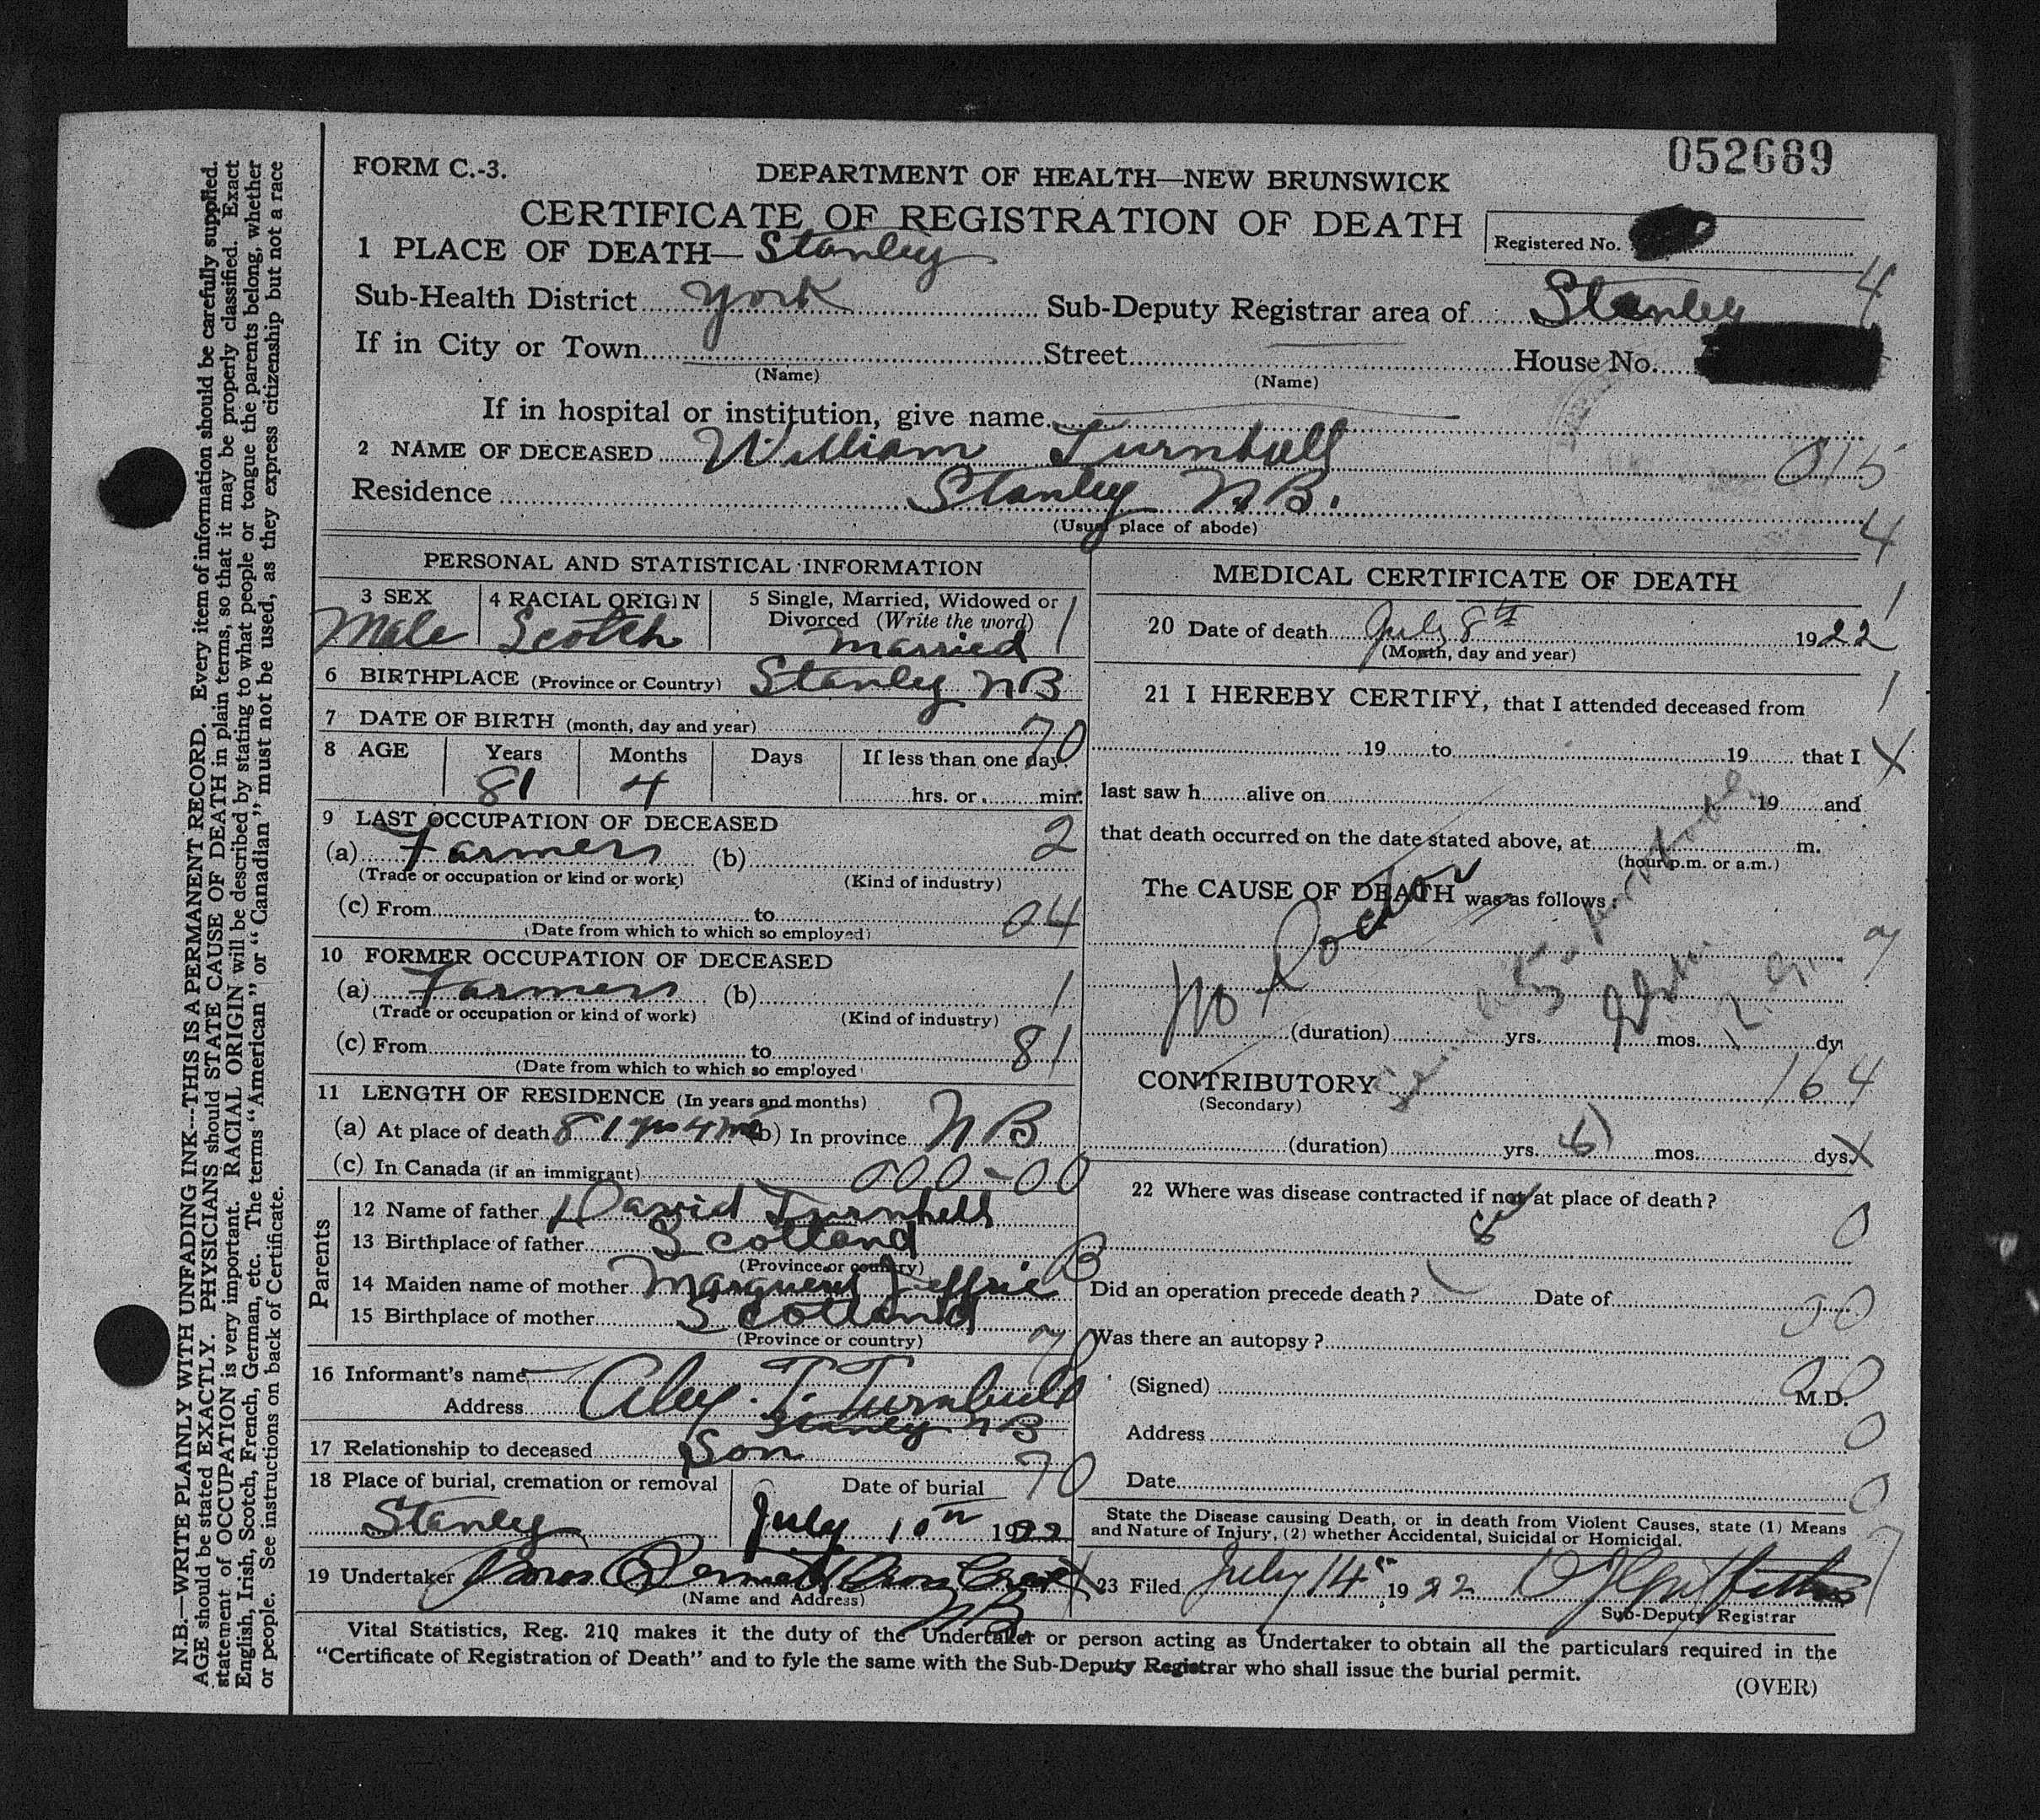 052689
FORM C.-3.
DEPARTMENT OF HEALTH—NEW BRUNSWICK
CERTIFICATE OF REGISTRATION OF DEATH
Registered No.
1 PLACE OF DEATH— Stanley
4
Sub-Health District York Sub-Deputy Registrar area of Stanley
If in City or Town Street House No.
(Name) (Name)
If in hospital or institution, give name
2 NAME OF DECEASED William Turnbull 015
Residence Stanley N.B.
(Usual place of abode) 4
PERSONAL AND STATISTICAL INFORMATION
3 SEX 4 RACIAL ORIGIN 5 Single, Married, Widowed or
Divorced (Write the word)
Male Scotch Married 1
6 BIRTHPLACE (Province or Country) Stanley NB
7 DATE OF BIRTH (month, day and year) 70
8 AGE Years Months Days If less than one day
81 4 hrs. or min.
9 LAST OCCUPATION OF DECEASED 2
(a) Farmers (b)
(Trade or occupation or kind or work) (Kind of industry)
(c) From to 04
(Date from which to which so employed)
10 FORMER OCCUPATION OF DECEASED
(a) Farmers (b) 1
(Trade or occupation or kind of work) (Kind of industry)
(c) From to 81
(Date from which to which so employed
11 LENGTH OF RESIDENCE (In years and months)
(a) At place of death 81 yrs 4 mo (b) In province NB
(c) In Canada (if an immigrant) 000-00
Parents
12 Name of father David Turnbull
13 Birthplace of father Scotland
(Province or country) B
14 Maiden name of mother Jeffrie
15 Birthplace of mother Scotland
(Province or country)
16 Informant's name Alex. T. Turnbull
Address Stanley NB
17 Relationship to deceased Son
70
18 Place of burial, cremation or removal Date of burial
Stanley July 10th 1922
19 Undertaker
(Name and Address)
NB
MEDICAL CERTIFICATE OF DEATH
1
20 Date of death July 8th 1922
(Month, day and year)
21 I HEREBY CERTIFY, that I attended deceased from 1
19 to 19 that I X
last saw h alive on 19 and
that death occurred on the date stated above, at m.
(hour p.m. or a.m.)
The CAUSE OF DEATH was as follows:
No Doctor
(duration) yrs. mos. dys
CONTRIBUTORY 164
(Secondary)
(duration) yrs. mos. dys. X
22 Where was disease contracted if not at place of death? 0
Did an operation precede death? Date of 00
Was there an autopsy?
(Signed) M.D.
Address 0
Date 0
State the Disease causing Death, or in death from Violent Causes, state (1) Means
and Nature of Injury, (2) whether Accidental, Suicidal or Homicidal.
23 Filed July 14 1922
Sub-Deputy Registrar
Vital Statistics, Reg. 210 makes it the duty of the Undertaker or person acting as Undertaker to obtain all the particulars required in the
"Certificate of Registration of Death" and to fyle the same with the Sub-Deputy Registrar who shall issue the burial permit.
(OVER)
N.B.—WRITE PLAINLY WITH UNFADING INK---THIS IS A PERMANENT RECORD. Every item of information should be carefully supplied.
AGE should be stated EXACTLY. PHYSICIANS should STATE CAUSE OF DEATH in plain terms, so that it may be properly classified. Exact
statement of OCCUPATION is very important. RACIAL ORIGIN will be described by stating to what people or tongue the parents belong, whether
English, Irish, Scotch, French, German, etc. The terms "American" or "Canadian" must not be used, as they express citizenship but not a race
or people. See instructions on back of Certificate.